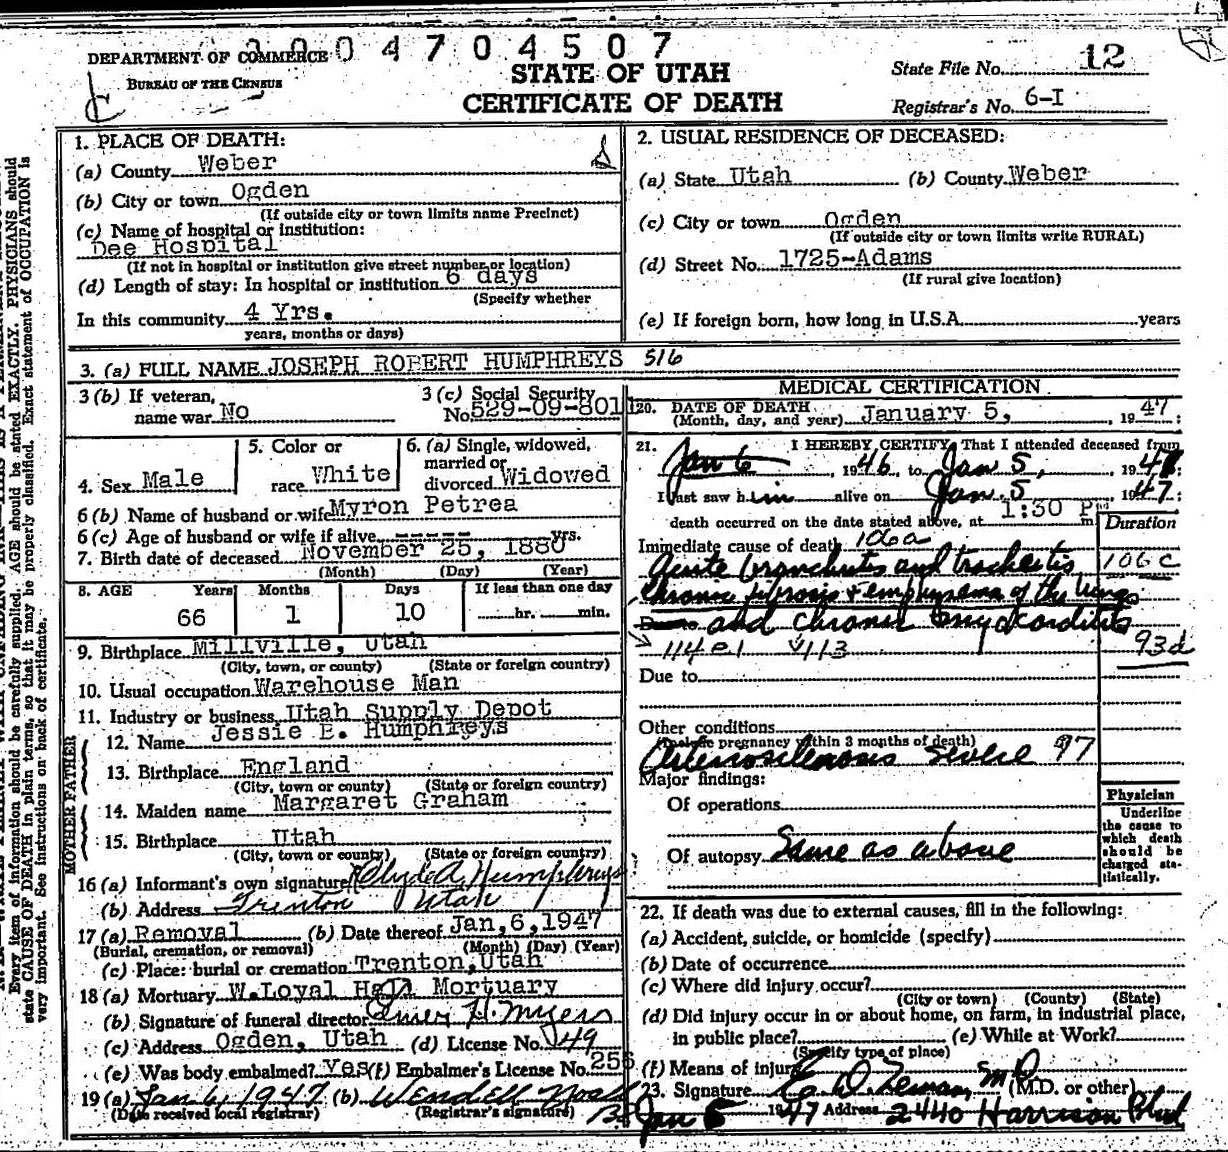 3004704507
DEPARTMENT OF COMMERCE
BUREAU OF THE CENSUS
STATE OF UTAH
CERTIFICATE OF DEATH
State File No. 12
Registrar's No. 6-I
1. PLACE OF DEATH:
(a) County Weber
(b) City or town Ogden
(If outside city or town limits name Precinct)
(c) Name of hospital or institution:
Dee Hospital
(If not in hospital or institution give street number or location)
(d) Length of stay: In hospital or institution 6 days
(Specify whether
In this community 4 Yrs.
years, months or days)
2. USUAL RESIDENCE OF DECEASED:
(a) State Utah (b) County Weber
(c) City or town Ogden
(If outside city or town limits write RURAL)
(d) Street No. 1725-Adams
(If rural give location)
(e) If foreign born, how long in U.S.A. years
3. (a) FULL NAME JOSEPH ROBERT HUMPHREYS 516
3 (b) If veteran, name war No
3 (c) Social Security No. 529-09-801
4. Sex Male
5. Color or race White
6. (a) Single, widowed, married or divorced Widowed
6 (b) Name of husband or wife Myron Petrea
6 (c) Age of husband or wife if alive ----- yrs.
7. Birth date of deceased November 25, 1880
(Month) (Day) (Year)
8. AGE Years Months Days If less than one day
66 1 10 hr. min.
9. Birthplace Millville, Utah
(City, town, or county) (State or foreign country)
10. Usual occupation Warehouse Man
11. Industry or business Utah Supply Depot
FATHER
12. Name Jessie E. Humphreys
13. Birthplace England
(City, town or county) (State or foreign country)
MOTHER
14. Maiden name Margaret Graham
15. Birthplace Utah
(City, town or county) (State or foreign country)
16 (a) Informant's own signature Clyde A Humphreys
(b) Address Trenton Utah
17 (a) Removal (b) Date thereof Jan, 6, 1947
(Burial, cremation, or removal) (Month) (Day) (Year)
(c) Place: burial or cremation Trenton, Utah
18 (a) Mortuary W. Loyal Hall Mortuary
(b) Signature of funeral director Elmer H. Myers
(c) Address Ogden, Utah (d) License No. 149
(e) Was body embalmed? Yes (f) Embalmer's License No. 256
19 (a) Jan 6, 1947 (b) Wendell
(Date received local registrar) (Registrar's signature)
MEDICAL CERTIFICATION
20. DATE OF DEATH
(Month, day, and year) January 5, 1947;
21. I HEREBY CERTIFY, That I attended deceased from
Jan 6, 1946, to Jan 5, 1947;
I last saw him alive on Jan. 5 1947;
death occurred on the date stated above, at 1:30 P m.
Duration
Immediate cause of death 106a
Acute bronchitis and tracheitis 106c
Chronic fibrosis + emphysema of the lungs
Due to and chronic myocarditis
114e1 113 93d
Due to
Other conditions
(Include pregnancy within 3 months of death)
Arteriosclerosis severe 97
Major findings:
Of operations
Of autopsy Same as above
Physician
Underline the cause to which death should be charged statistically.
22. If death was due to external causes, fill in the following:
(a) Accident, suicide, or homicide (specify)
(b) Date of occurrence
(c) Where did injury occur?
(City or town) (County) (State)
(d) Did injury occur in or about home, on farm, in industrial place,
in public place? (e) While at Work?
(Specify type of place)
(f) Means of injury
23. Signature M.D. (M.D. or other)
Jan 5 1947 Address 2440 Harrison Blvd
Every item of information should be carefully supplied. AGE should be stated EXACTLY. PHYSICIANS should
state CAUSE OF DEATH in plain terms, so that it may be properly classified. Exact statement of OCCUPATION is
very important. See instructions on back of certificate.